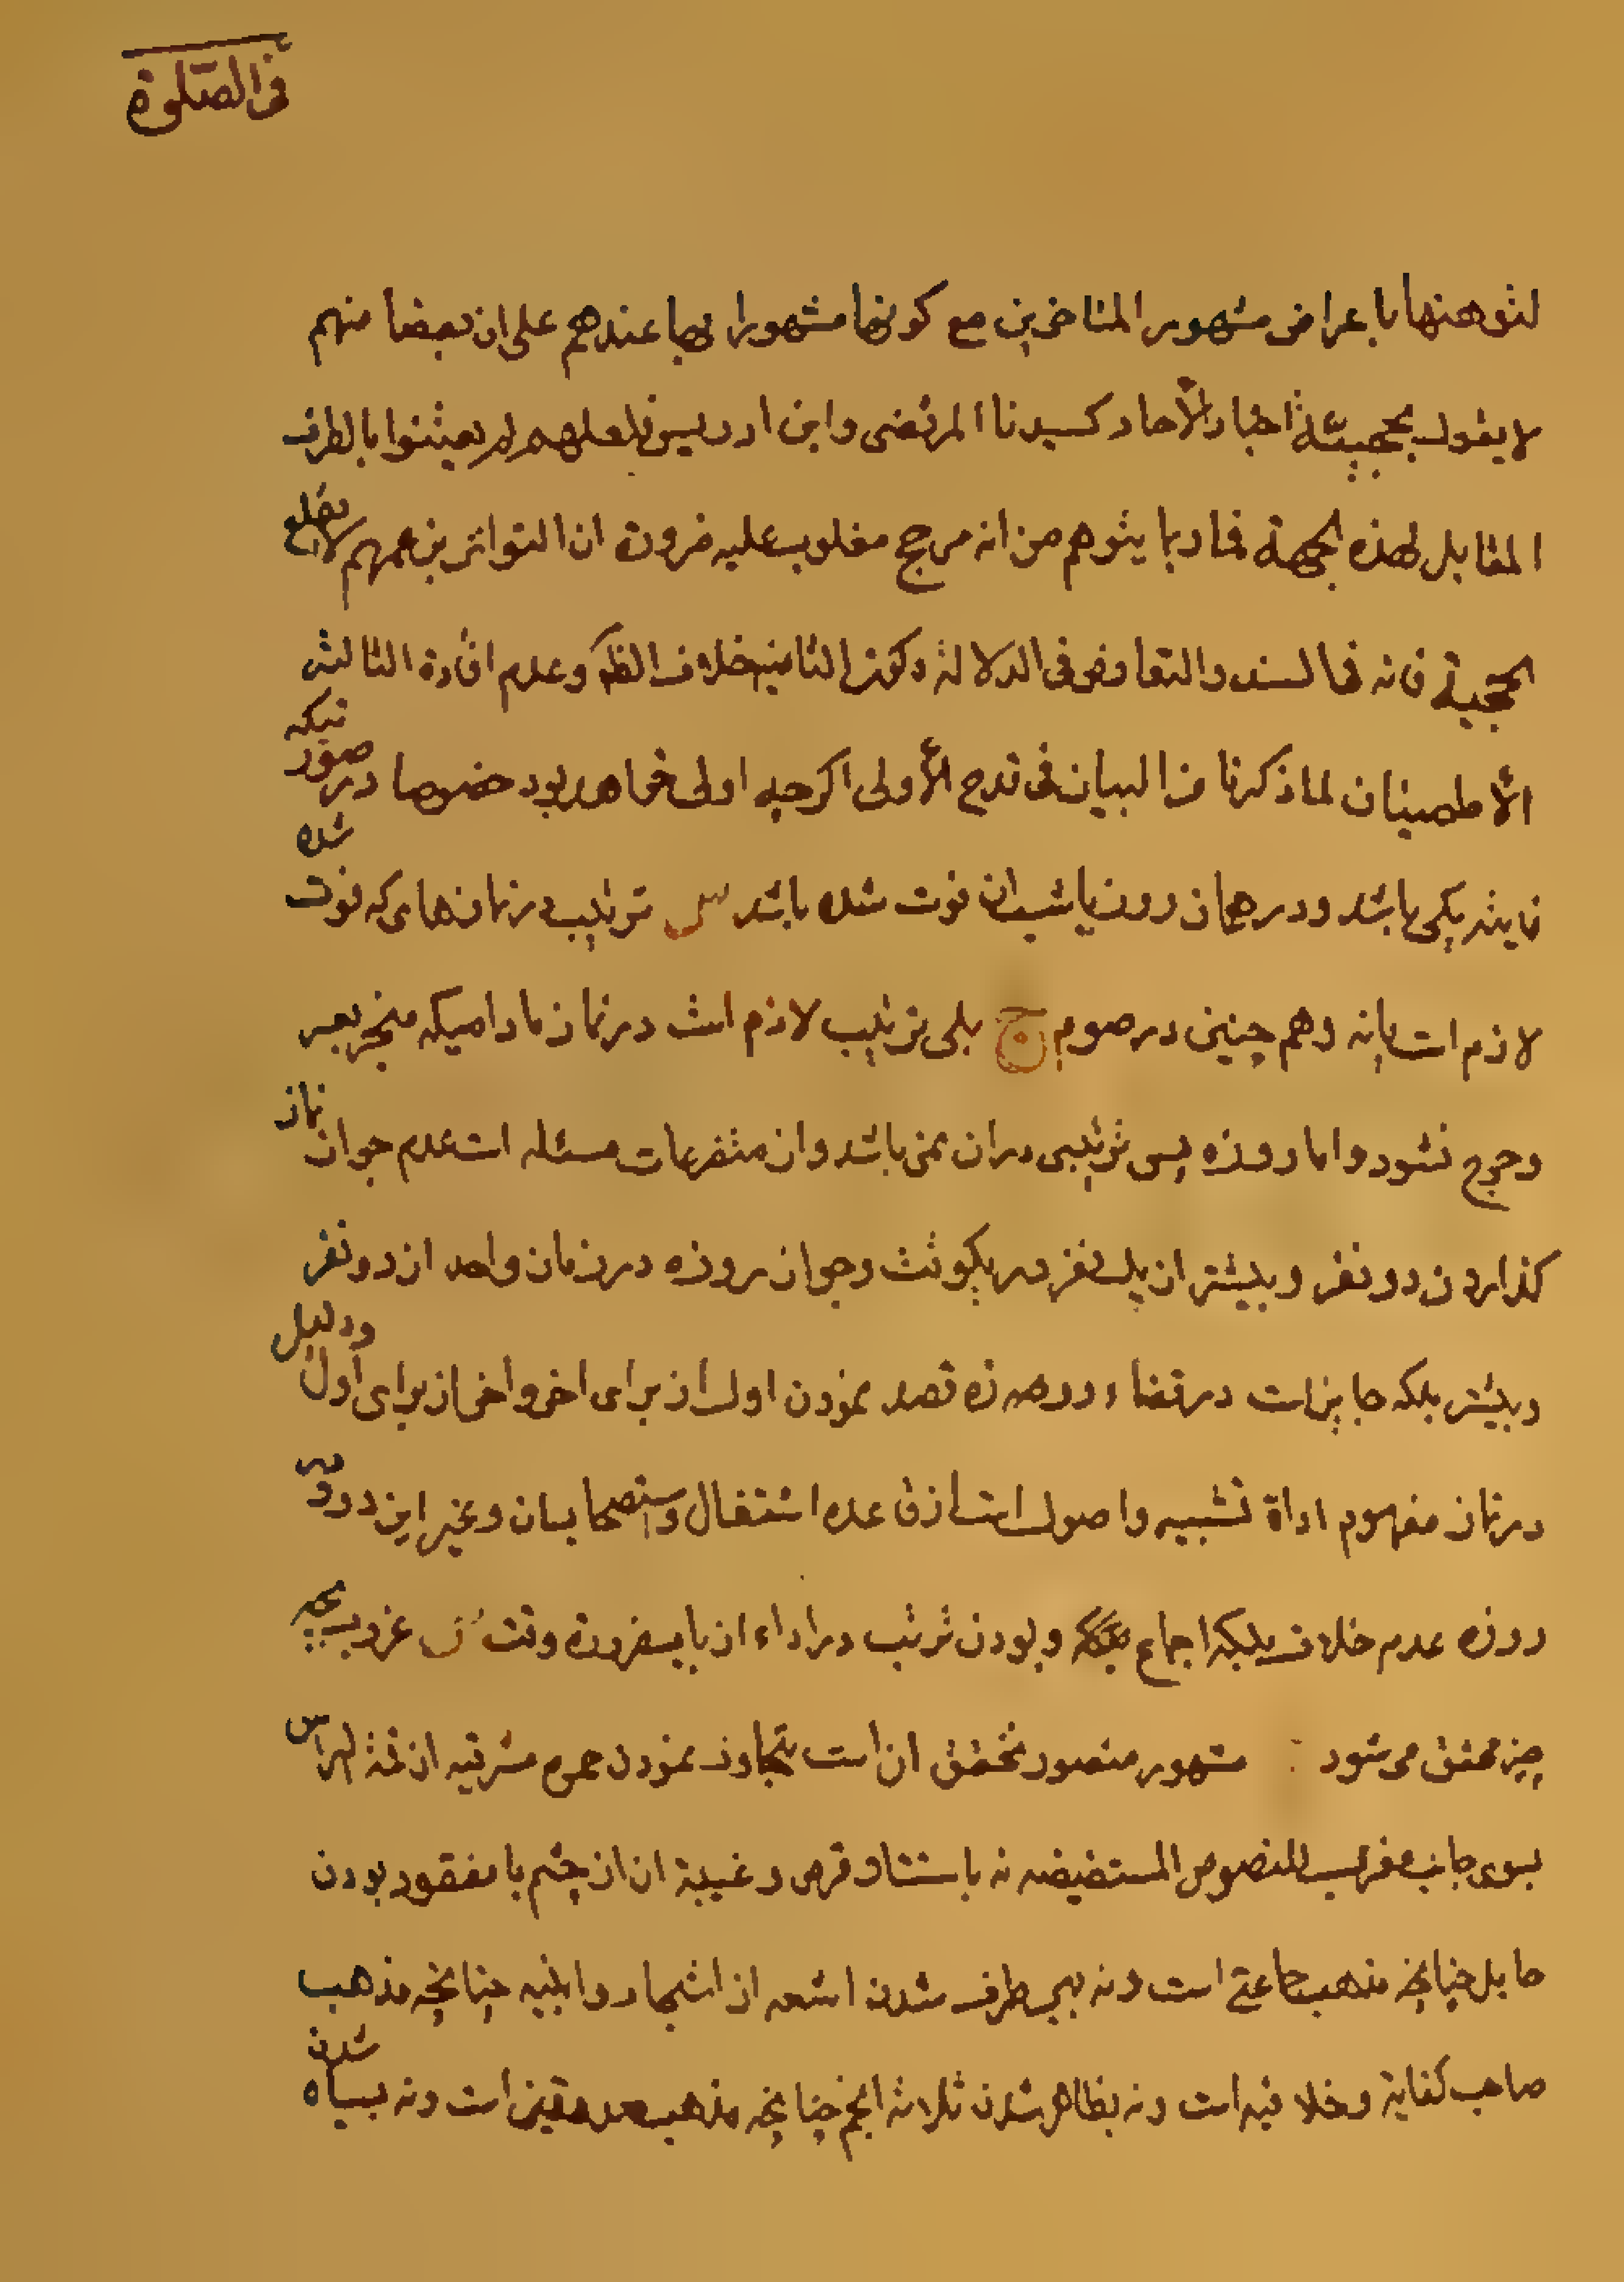 فی الصّلوة
لتوهنها باعراض مشهور المتاخرین مع کونها مشهورا بها عندهم علی ان بعضا منهم
لا یقول بحجیّة اخبار الأحاد کسیدنا المرتضی وابن ادریس فلعلهم لم یعثنوا بالطرف
المقابل لهذه الجهة فما ربما یتوهم من انه مرجح مقلوب علیه ضرورة ان التواتر من عمهم لا یقلع
الحجیة فانه فی السند والتعارض فی الدلالة وکون الثانیة خلاف الظ وعدم افادة الثالثة
الأطمینان لما ذکرنا من البیان فی قدح الأولی اکرچه اولی خواهد بود خصوصا در صورتیکه
نایثر یکی باشد ودر همان روز یا شب ان فوت شده باشد س ترتیب در نمازهای که فوت شده
لازم است یا نه وهم چنین در صوم ج بلی ترتیب لازم است در نماز مادامیکه منجر بعسر
وحرج نشود واما روزه پس ترتیبی در ان نمی باشد واز متفرعات مسئله است عدم جواز نماز
کذاردن دو نفر وبیشتر از یک نفر در یکوقت وجواز روزه در زمان واحد از دو نفر
وبیشتر بلکه جایز است در قضاء روزه قصد نمودن اول از برای اخر واخر از برای اول ودلیل
در نماز مفهوم اداة تشبیه واصول است از قاعده اشتغال واستصحاب ان وغیر این دو ودر
روزه عدم خلاف بلکه اجماع بلکه وبودن ترتیب در اداء از باب ضرورة وقت س غروب بچه
چیز محقق می شود مشهور منصور محقق ان است بتجاوز نمودن حمره مشرقیه از قمة الراس
بسوی جانب مغرب للنصوص المستفیضه نه باستتار قرص وغیبة ان از چشم با مفقود بودن
حایل چنانچه مذهب جماعتی است ونه ببر طرف شدن اشعه از اشجار وابنیه چنانچه مذهب
صاحب کفایة وخلافیه است ونه بظاهر شدن ثلاثه انجم چنانچه مذهب صدوقین است ونه بسیاه شدن